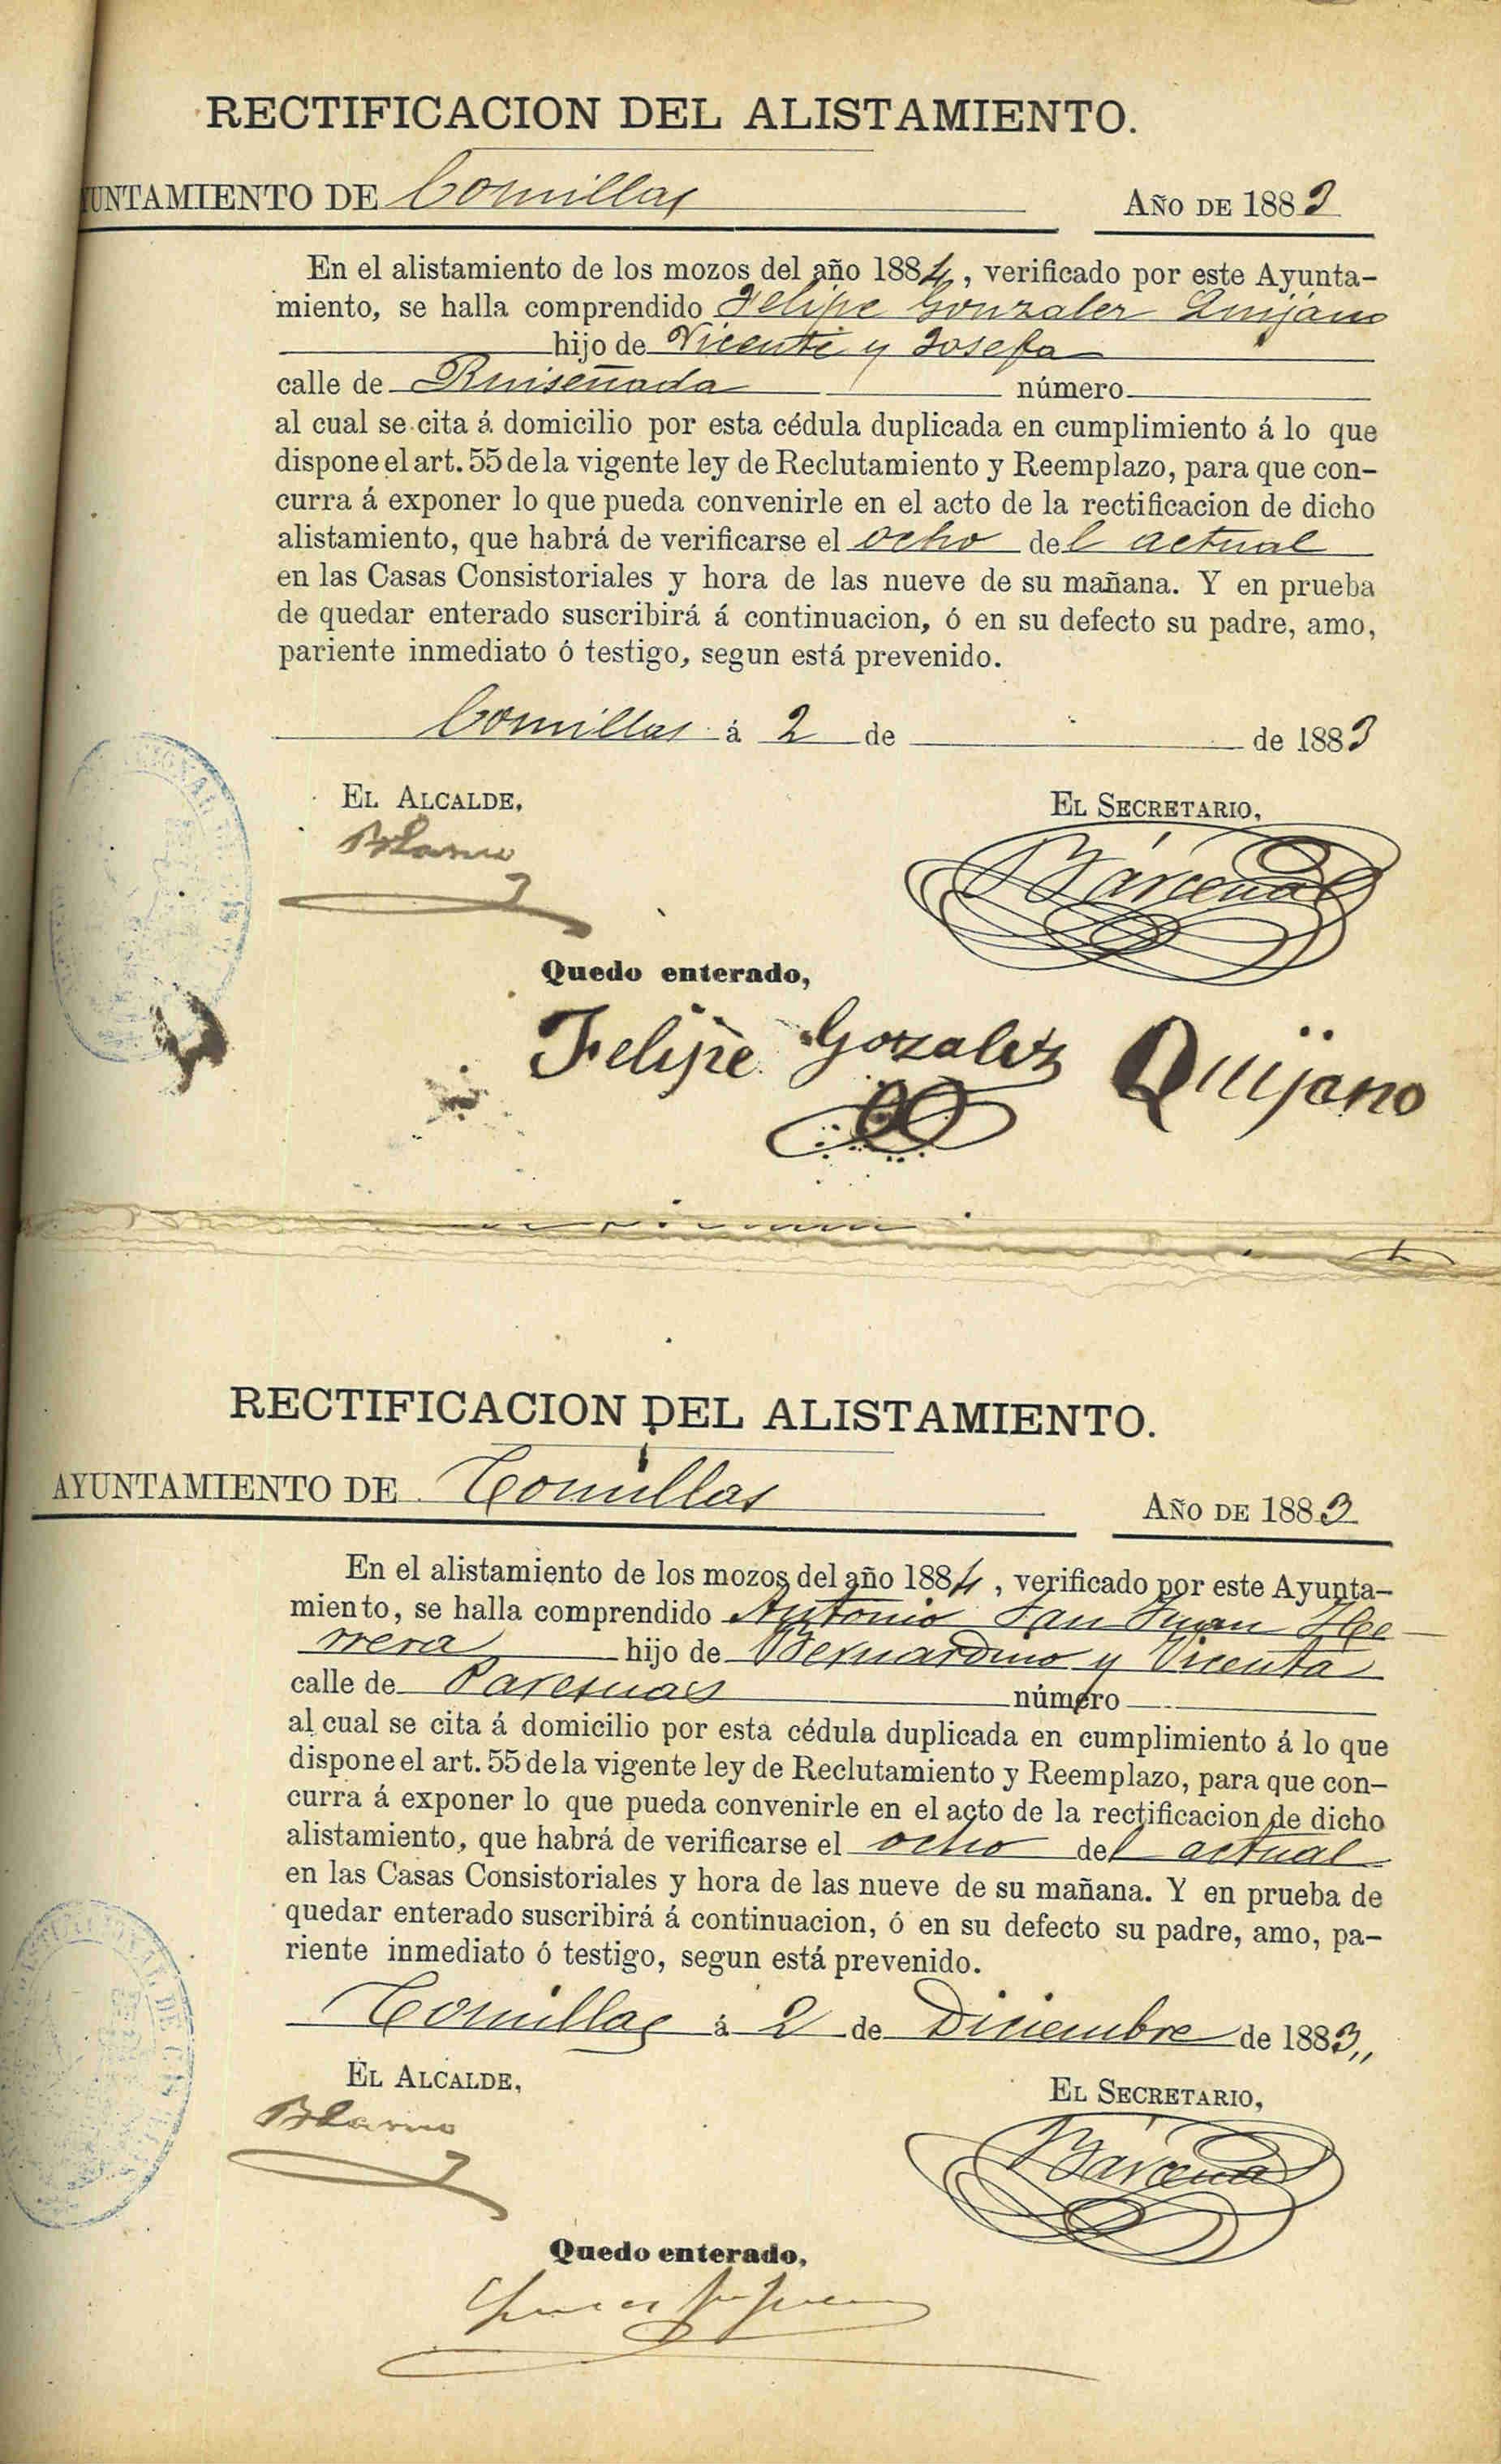 RECTIFICACION DEL ALISTAMIENTO.
UNTAMIENTO DE Comillas AÑO DE 1883
En el alistamiento de los mozos del año 1884, verificado por este Ayunta-
miento, se halla comprendido Felipe Gonzalez Quijano
hijo de Vicente y Josefa
calle de Ruiseñada número
al cual se cita á domicilio por esta cédula duplicada en cumplimiento á lo que
dispone el art. 55 de la vigente ley de Reclutamiento y Reemplazo, para que con-
curra á exponer lo que pueda convenirle en el acto de la rectificacion de dicho
alistamiento, que habrá de verificarse el ocho del actual
en las Casas Consistoriales y hora de las nueve de su mañana. Y en prueba
de quedar enterado suscribirá á continuacion, ó en su defecto su padre, amo,
pariente inmediato ó testigo, segun está prevenido.
Comillas á 2 de de 1883
EL ALCALDE, EL SECRETARIO,
Bárcena
Quedo enterado,
Felipe Gozalez Quijano
RECTIFICACION DEL ALISTAMIENTO.
AYUNTAMIENTO DE Comillas AÑO DE 1883
En el alistamiento de los mozos del año 1884, verificado por este Ayunta-
miento, se halla comprendido Antonio San Juan He
rrera hijo de Bernardino y Vicenta
calle de número
al cual se cita á domicilio por esta cédula duplicada en cumplimiento á lo que
dispone el art. 55 de la vigente ley de Reclutamiento y Reemplazo, para que con-
curra á exponer lo que pueda convenirle en el acto de la rectificacion de dicho
alistamiento, que habrá de verificarse el ocho del actual
en las Casas Consistoriales y hora de las nueve de su mañana. Y en prueba de
quedar enterado suscribirá á continuacion, ó en su defecto su padre, amo, pa-
riente inmediato ó testigo, segun está prevenido.
Comillas á 2 de Diciembre de 1883,,
EL ALCALDE, EL SECRETARIO,
Bárcena
Quedo enterado,